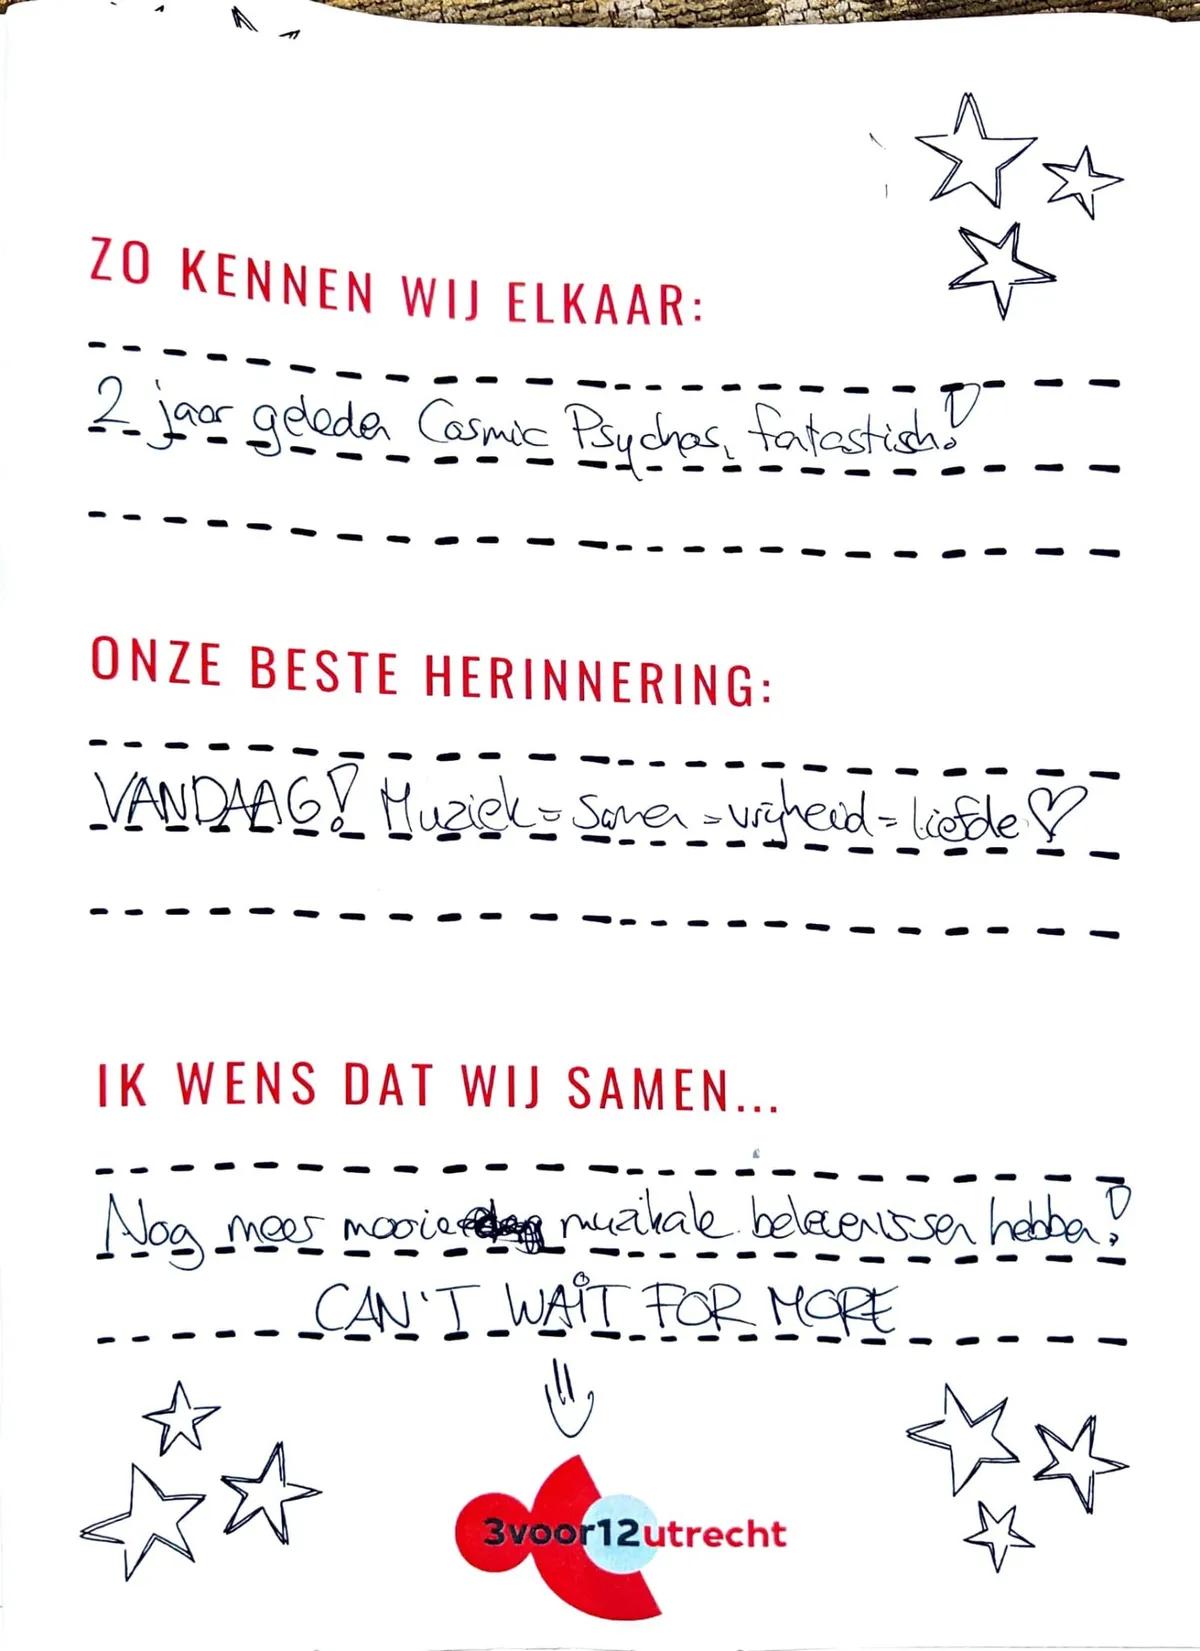 ZO KENNEN WIJ ELKAAR:
2 jaar geleden Cosmic Psychos, fantastisch!
ONZE BESTE HERINNERING:
VANDAAG! Muziek = Samen = vrijheid = liefde ♡
IK WENS DAT WIJ SAMEN...
Nog meer mooie muzikale belevenissen hebben!
CAN'T WAIT FOR MORE
3voor12utrecht